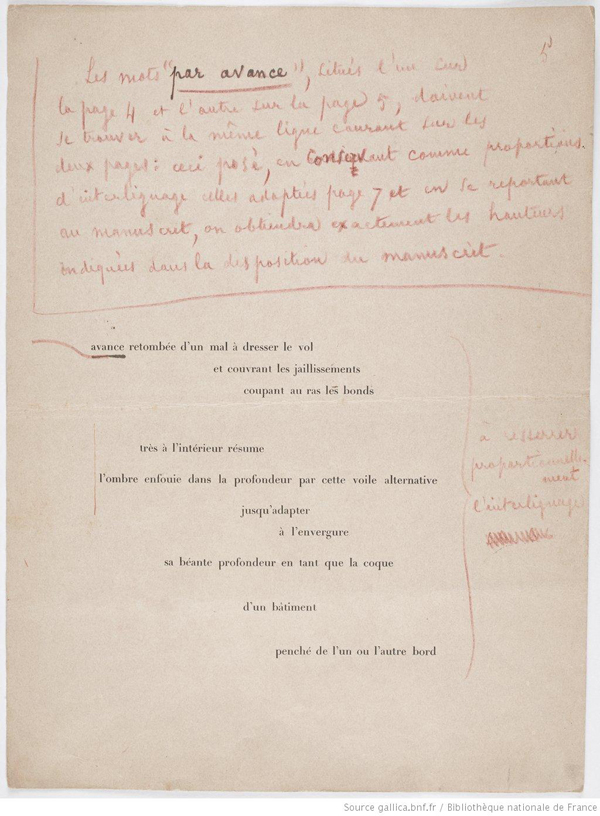 5
Les mots "par avance", situés l'un sur
la page 4 et l'autre sur la page 5, doivent
se trouver à la même ligne courant sur les
deux pages: ceci posé, en conservant comme proportions
d'interlignage celles adaptées page 7 et en se reportant
au manuscrit, on obtiendra exactement les hauteurs
indiquées dans la disposition du manuscrit.
avance retombée d'un mal à dresser le vol
et couvrant les jaillissements
coupant au ras les bonds
très à l'intérieur résume
l'ombre enfouie dans la profondeur par cette voile alternative
jusqu'adapter
à l'envergure
sa béante profondeur en tant que la coque
d'un bâtiment
penché de l'un ou l'autre bord
à resserrer
proportionnelle-
ment
l'interlignage
Source gallica.bnf.fr / Bibliothèque nationale de France